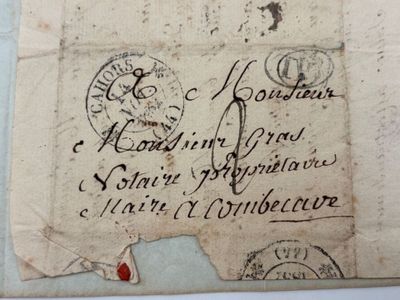 CAHORS
14
(44)
ID
A Monsieur
2
Monsieur Gras
Notaire propriétaire
Maire a Combecave
(44)
1831